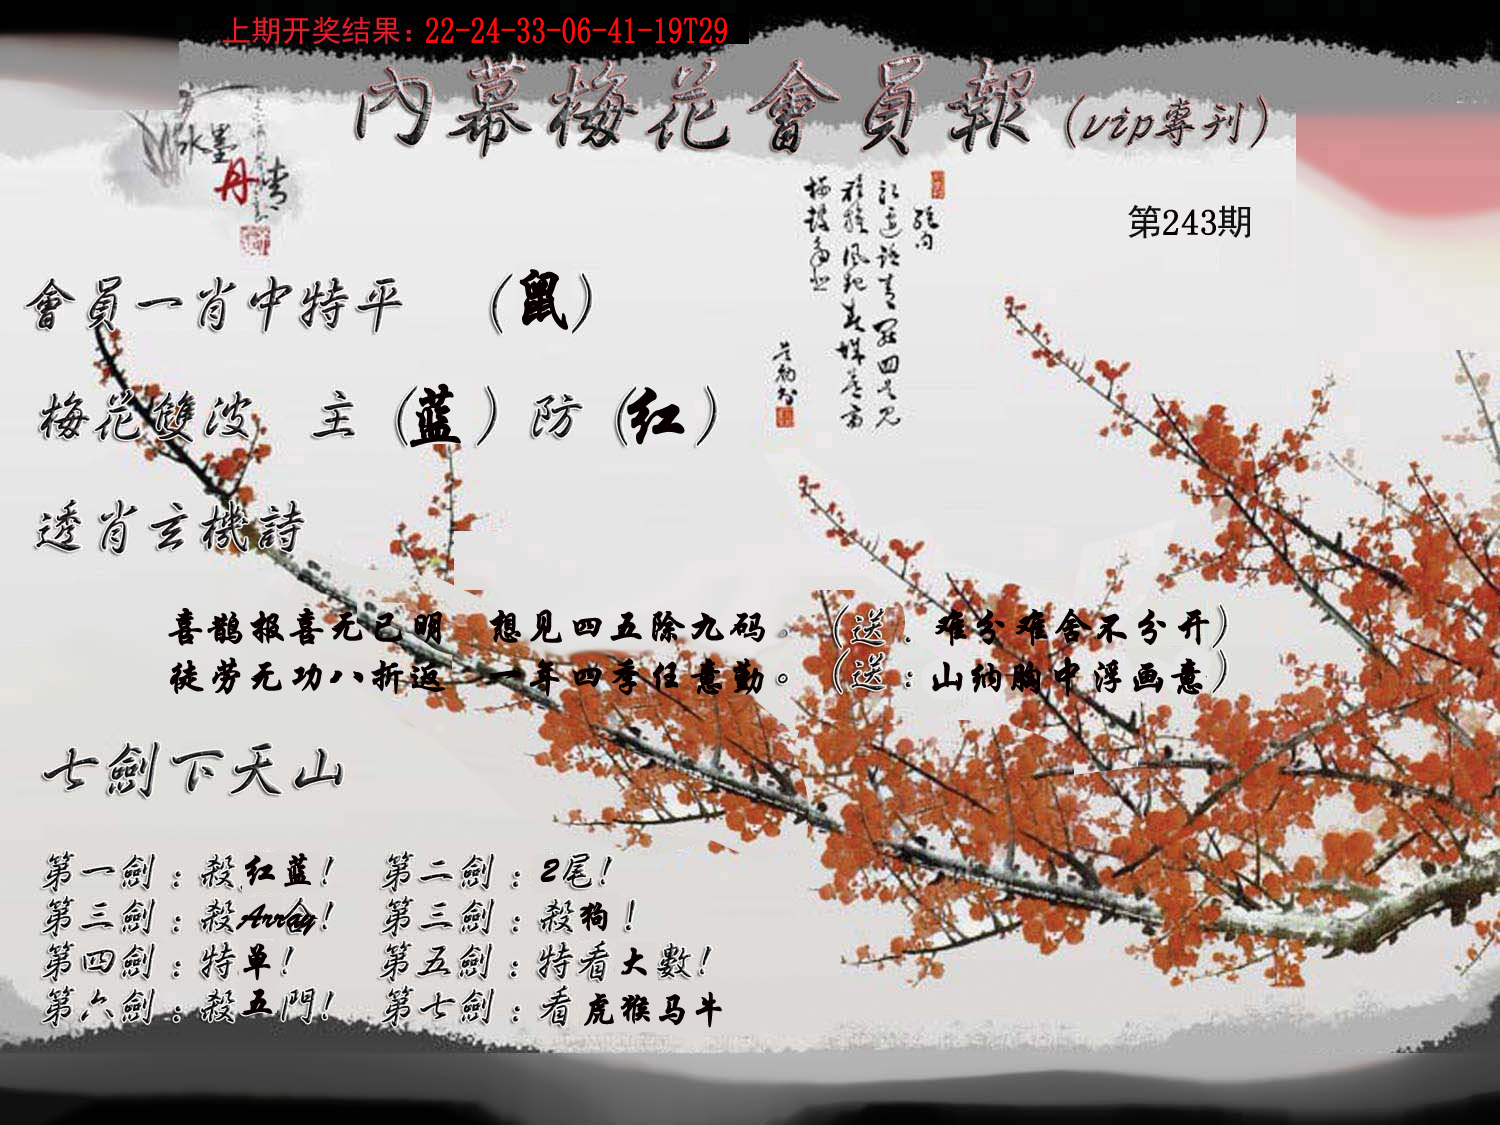 上期开奖结果：22-24-33-06-41-19T29
內幕梅花會員報（vip專刊）
水墨
丹情
第243期
會員一肖中特平　（鼠）
梅花雙波　主（蓝）防（红）
透肖玄機詩
喜鹊报喜无已明　想见四五除九码。（送：难分难舍不分开）
徒劳无功八折返　一年四季任意勤。（送：山纳胸中浮画意）
七劍下天山
第一劍：殺红蓝！　第二劍：2尾！
第三劍：殺Array合！　第三劍：殺狗！
第四劍：特单！　第五劍：特看大數！
第六劍：殺五門！　第七劍：看虎猴马牛